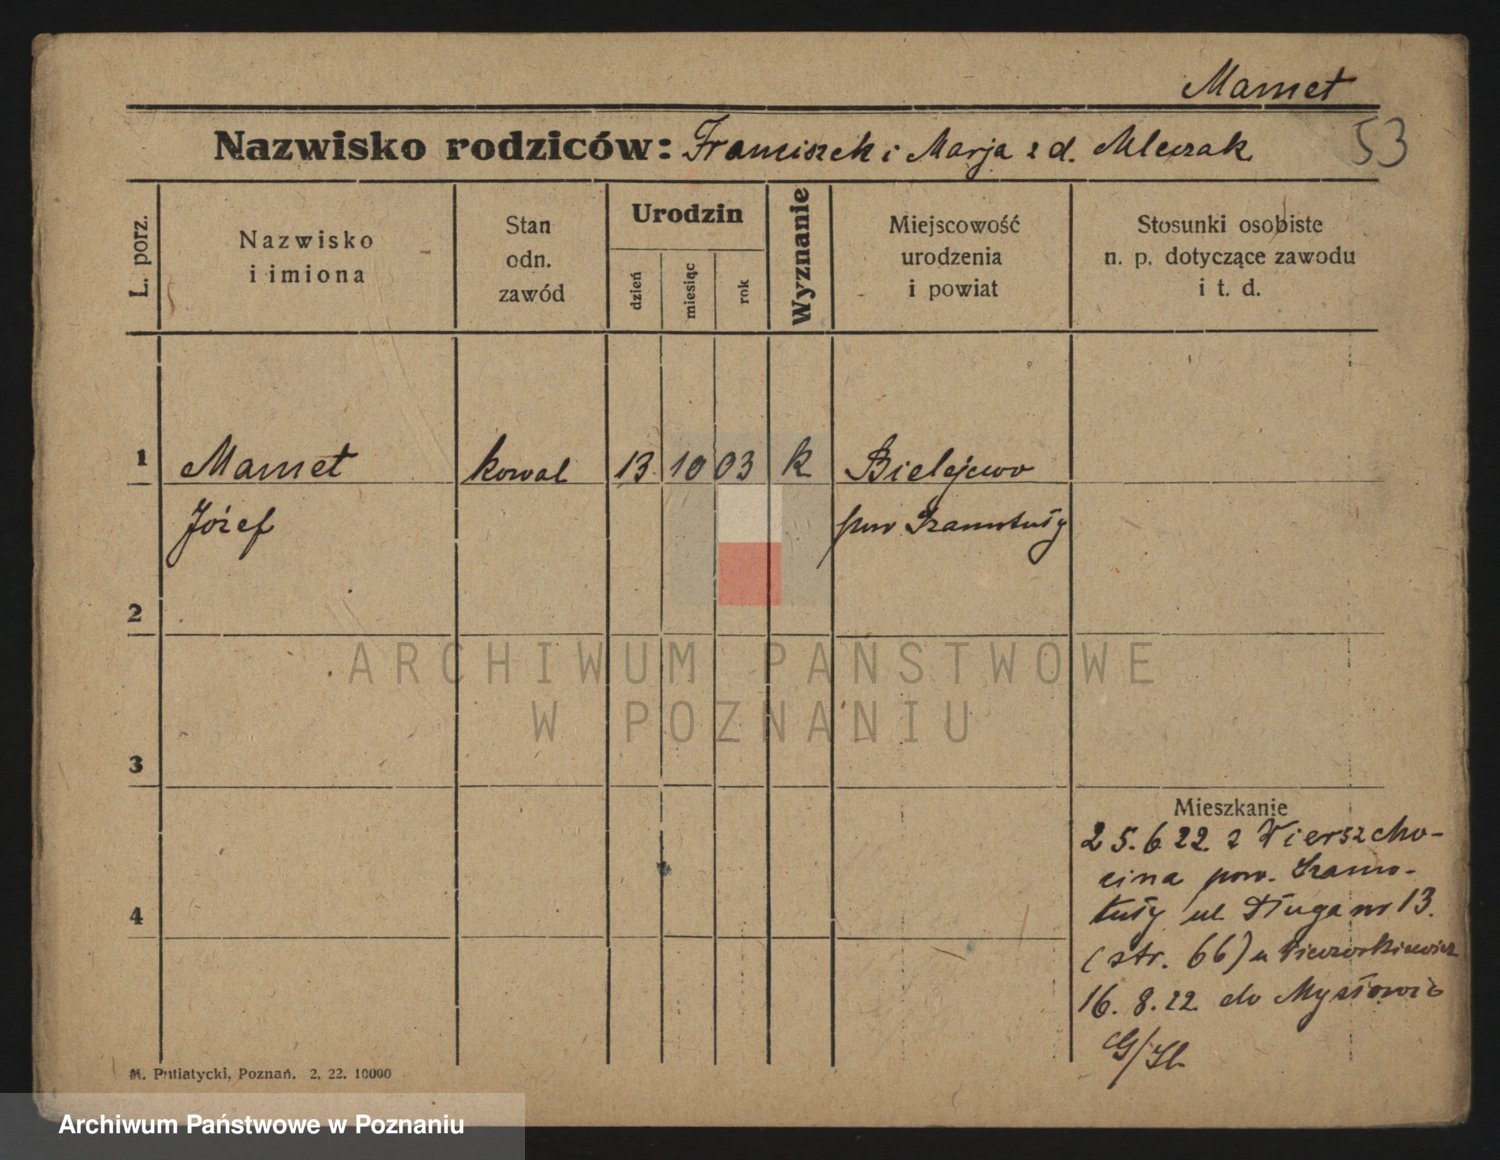 Mamet
Nazwisko rodziców: Franciszek i Marja z d. Mleczak
53
L. porz.
Nazwisko
i imiona
Stan
odn.
zawód
Urodzin
dzień
miesiąc
rok
Wyznanie
Miejscowość
urodzenia
i powiat
Stosunki osobiste
n. p. dotyczące zawodu
i t. d.
1 Mamet kowal 13 10 03 k Bielejewo
Józef pow Szamotuły
2
ARCHIWUM PAŃSTWOWE
W POZNANIU
3
Mieszkanie
25.6.22 z Wierszcho-
cina pow. Szamo-
4 tuły ul. Długa nr 13.
(str. 66) u
16.8.22 do Mysłowic
M. Putiatycki, Poznań. 2. 22. 10000
Archiwum Państwowe w Poznaniu